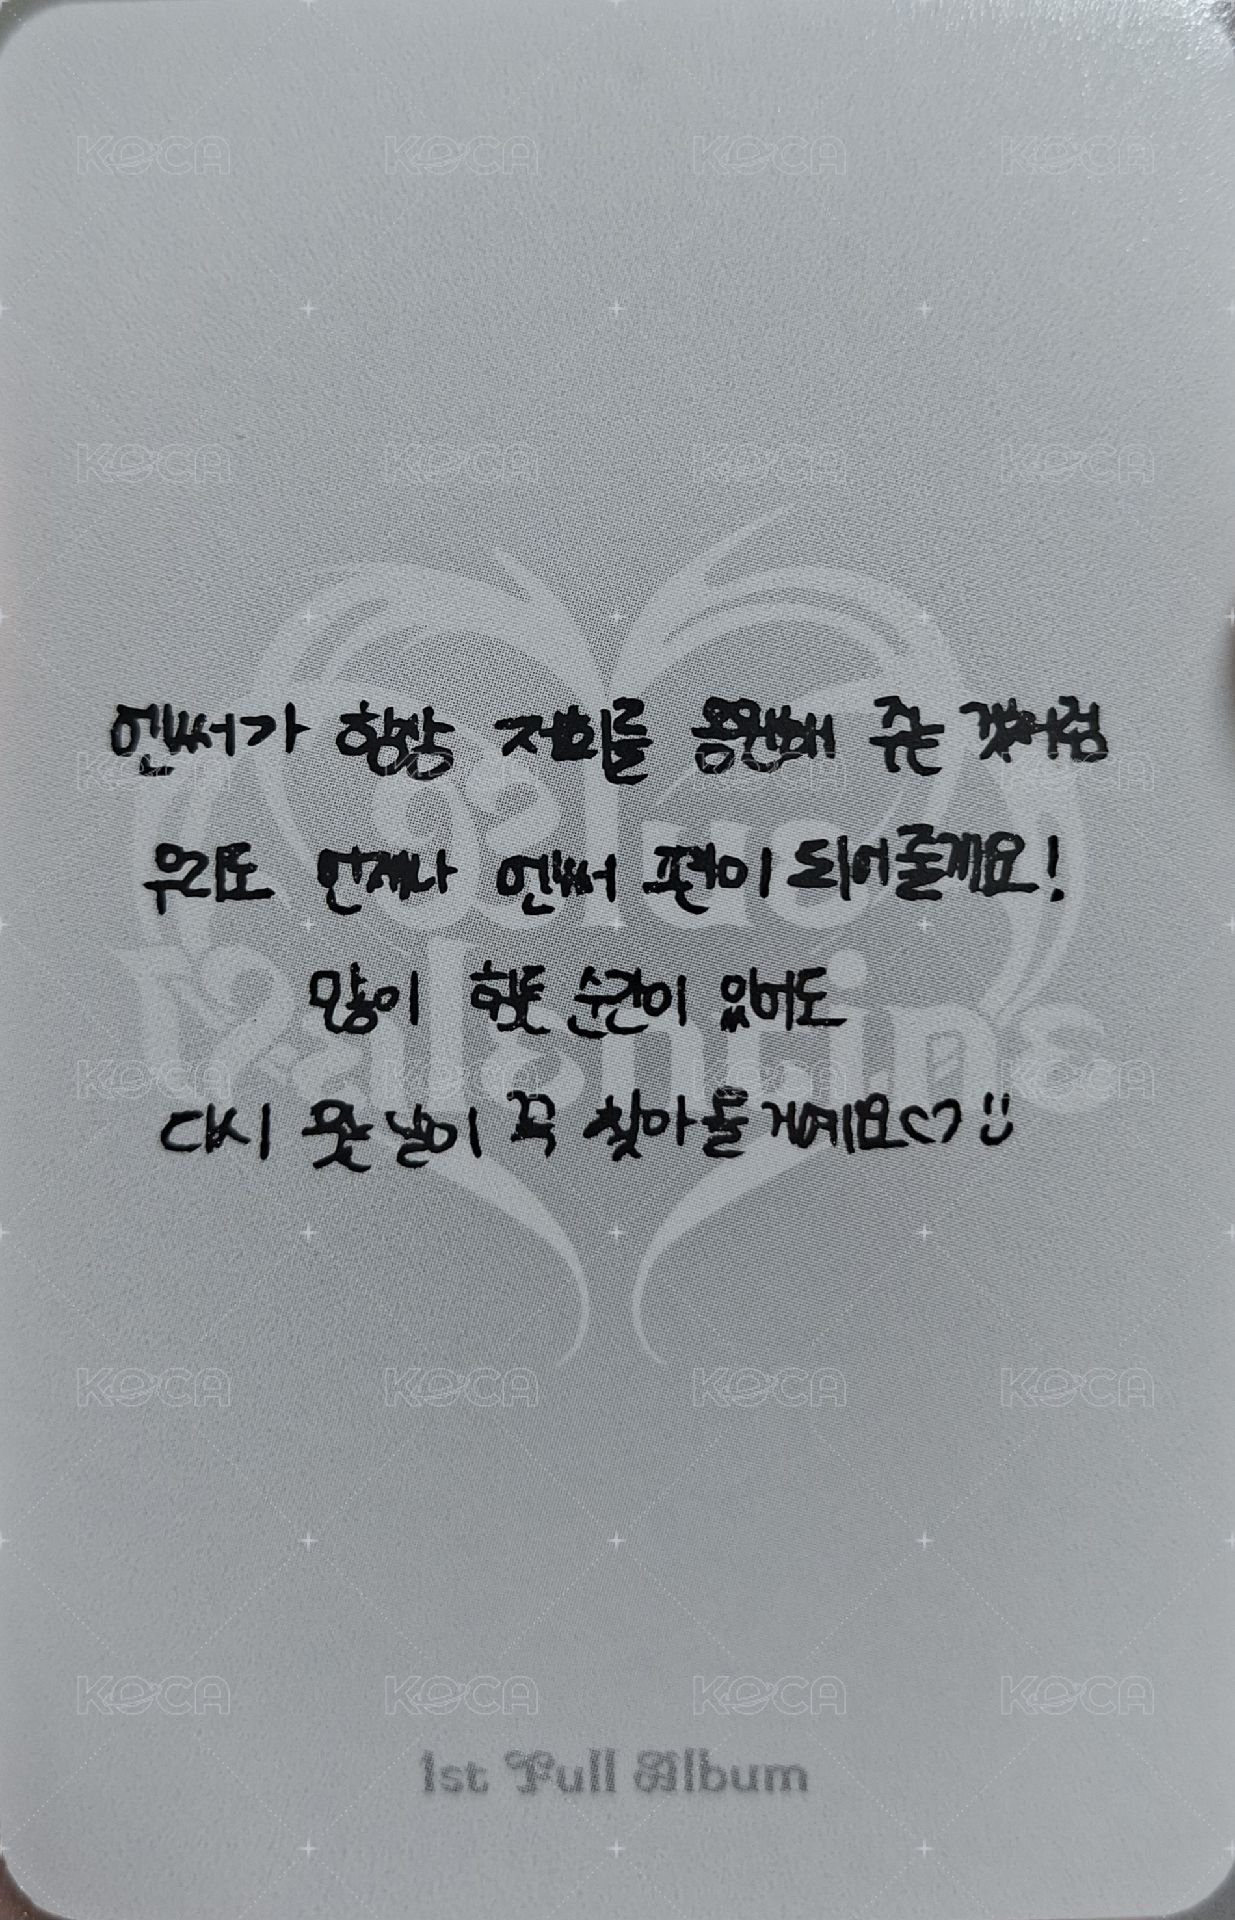 KOCA KOCA KOCA KOCA
KOCA KOCA KOCA KOCA
엔써가 항상 저희를 응원해 주는 것처럼
KOCA KOCA KOCA KOCA
Blue
우리도 언제나 엔써 편이 되어줄게요!
Valentine
많이 힘든 순간이 있어도
KOCA KOCA KOCA KOCA
다시 웃는 날이 꼭 찾아올 거예요♡ :)
KOCA KOCA KOCA KOCA
KOCA KOCA KOCA KOCA
1st Full Album